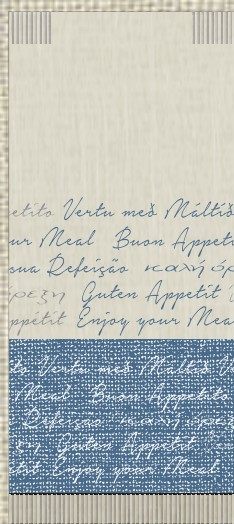 etito Vertu með Máltíð
ur Meal Buon Appeti
sua Refeição καλή όρ
ρεξη Guten Appetit
ppétit Enjoy your Mea
to Vertu með Máltíð V
Meal Buon Appetito
Refeição καλή όρεξη
ξη Guten Appetit
tit Enjoy your Meal